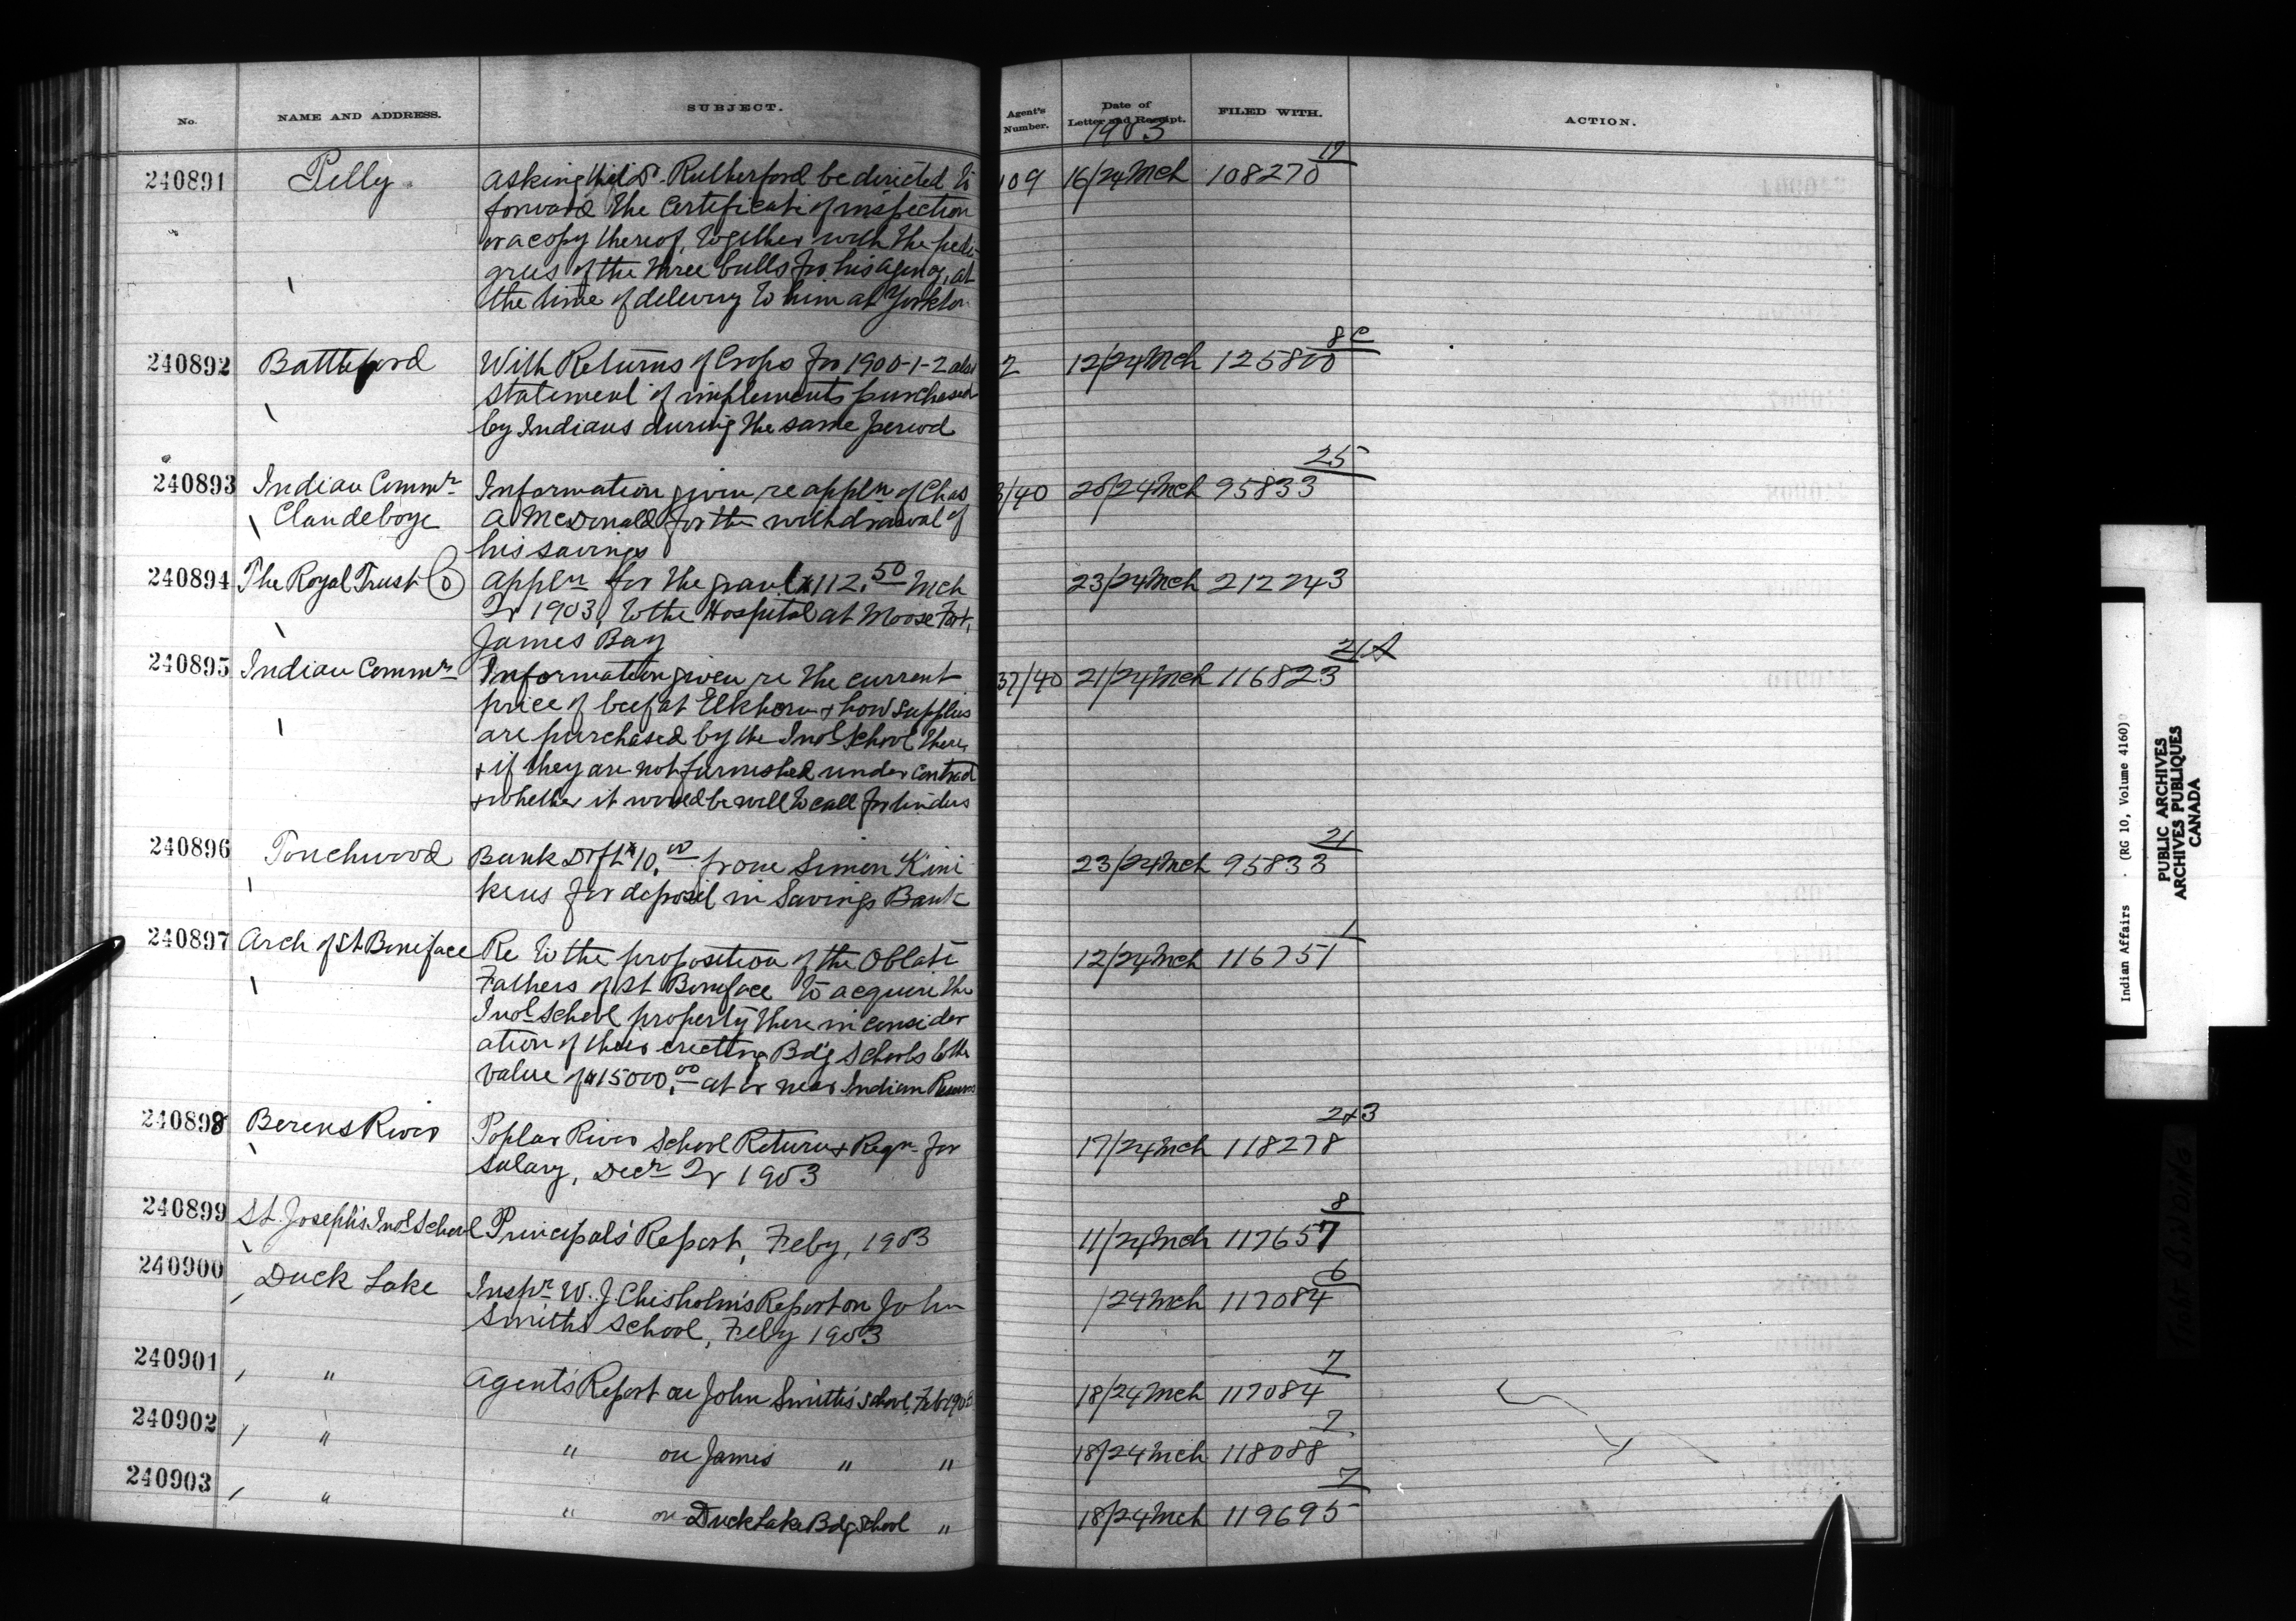 No. NAME AND ADDRESS. SUBJECT. Agent's Number. Date of Letter and Receipt. FILED WITH. ACTION.
1903
240891 Pelly asking Rutherford be directed to 109 16/24 Mch 108270 19
forward the Certificate of inspection
or a copy thereof, together with the pedi-
grees of the three bulls for his agency, at
the time of delivery to him at Yorkton
240892 Battleford With Returns of Crops for 1900-1-2 also 2 12/24 Mch 125800 8C
statement of implements purchased
by Indians during the same period
240893 Indian Commr Information given re appln of Chas 3/40 20/24 Mch 95833 25
Clandeboye A McDonald for the withdrawal of
his savings
240894 The Royal Trust Co appln for the grant $112.50 Mch 23/24 Mch 212243
Qr 1903, to the Hospital at Moose Fort,
James Bay
240895 Indian Commr Information given re the current 37/40 21/24 Mch 116823 21A
price of beef at Elkhorn & how supplies
are purchased by the Indl School there,
& if they are not furnished under contract
& whether it would be well to call for tenders
240896 Touchwood Bank Drft $10.00 from Simon Kini 23/24 Mch 95833 21
kens for deposit in Savings Bank
240897 Arch of St Boniface Re to the proposition of the Oblate 12/24 Mch 116751 1
Fathers of St Boniface to acquire the
Indl School property there in consider
ation of their erecting Bdg Schools to the
value of $15000.00 at or near Indian
240898 Berens River Poplar River School Returns & Reqn for 17/24 Mch 118278 2&3
salary, Decr Qr 1903
240899 St. Joseph's Indl School Principal's Report, Feby, 1903 11/24 Mch 117657 8
240900 Duck Lake Inspr W. J. Chisholm's Report on John /24 Mch 117084 6
Smiths School, Feby 1903
240901 " Agent's Report on John Smith's School, Feb 1903 18/24 Mch 117084 7
240902 " " on James " " 18/24 Mch 118088 7
240903 " " on Duck Lake Bdg School " 18/24 Mch 119695 7
Indian Affairs (RG 10, Volume 4160)
PUBLIC ARCHIVES
ARCHIVES PUBLIQUES
CANADA